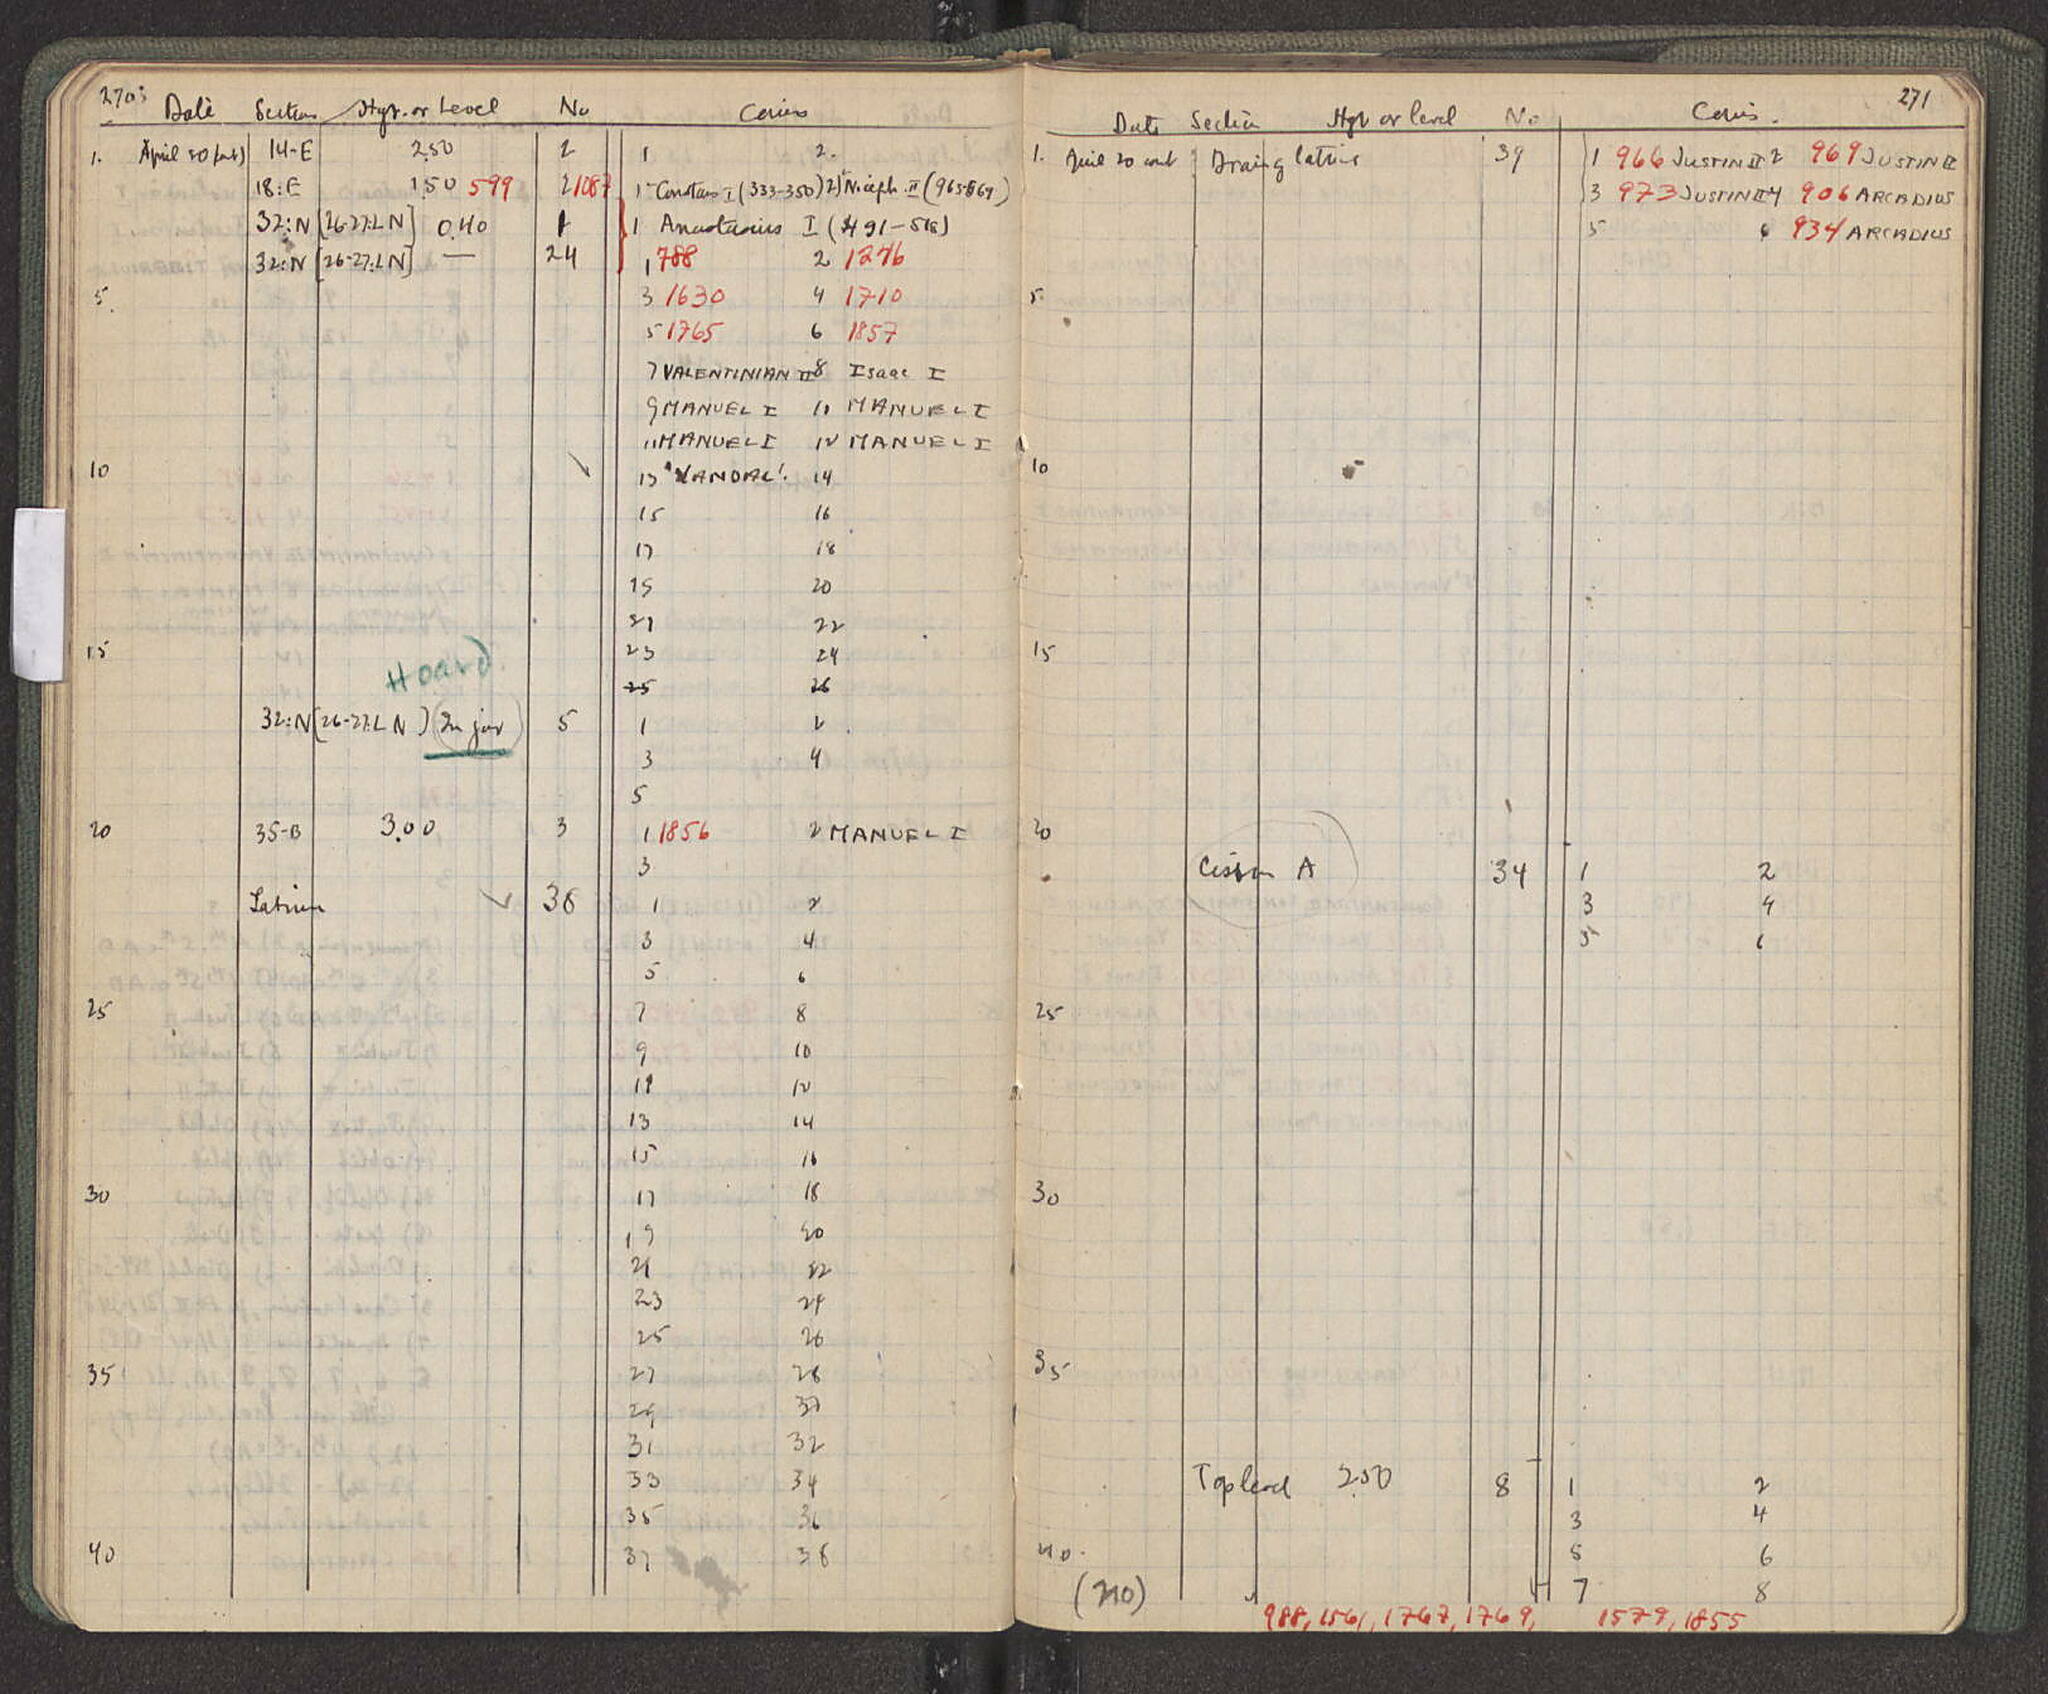 270
Date Section Hgt. or Level No Coins
1. April 20 14-E 2.50 2 1 2.
18:E 1.50 599 2 1087 1 Constans I (333-350) 2) Niceph. II (963-969)
32:N [26-27:LN] 0.40 1 1 Anastasius I (491-518)
32:N [26-27:LN] — 24 1 788 2 1276
5. 3 1630 4 1710
5 1765 6 1857
7 VALENTINIAN II 8 Isaac I
9 MANUEL I 10 MANUEL I
11 MANUEL I 12 MANUEL I
10 13 "VANDAL". 14
15 16
17 18
19 20
21 22
15 23 24
Hoard.
25 26
32:N [26-27:LN] (In jar) 5 1 2
3 4
5
20 35-B 3.00 3 1 1856 2 MANUEL I
3
Latrine 38 1 2
3 4
5 6
25 7 8
9 10
11 12
13 14
15 16
30 17 18
19 20
21 22
23 24
25 26
35 27 28
29 30
31 32
33 34
35 36
40 37 38
271
Date Section Hgt or level No Coins.
1. April 20 cont Drain latrine 39 1 966 JUSTIN II 2 969 JUSTIN II
3 973 JUSTIN II 4 906 ARCADIUS
5 6 934 ARCADIUS
5.
10
15
20
Cistern A 34 1 2
3 4
5 6
25
30
35
Top level 2.50 8 1 2
3 4
40. 5 6
(210) 7 8
988, 1561, 1767, 1769, 1579, 1855